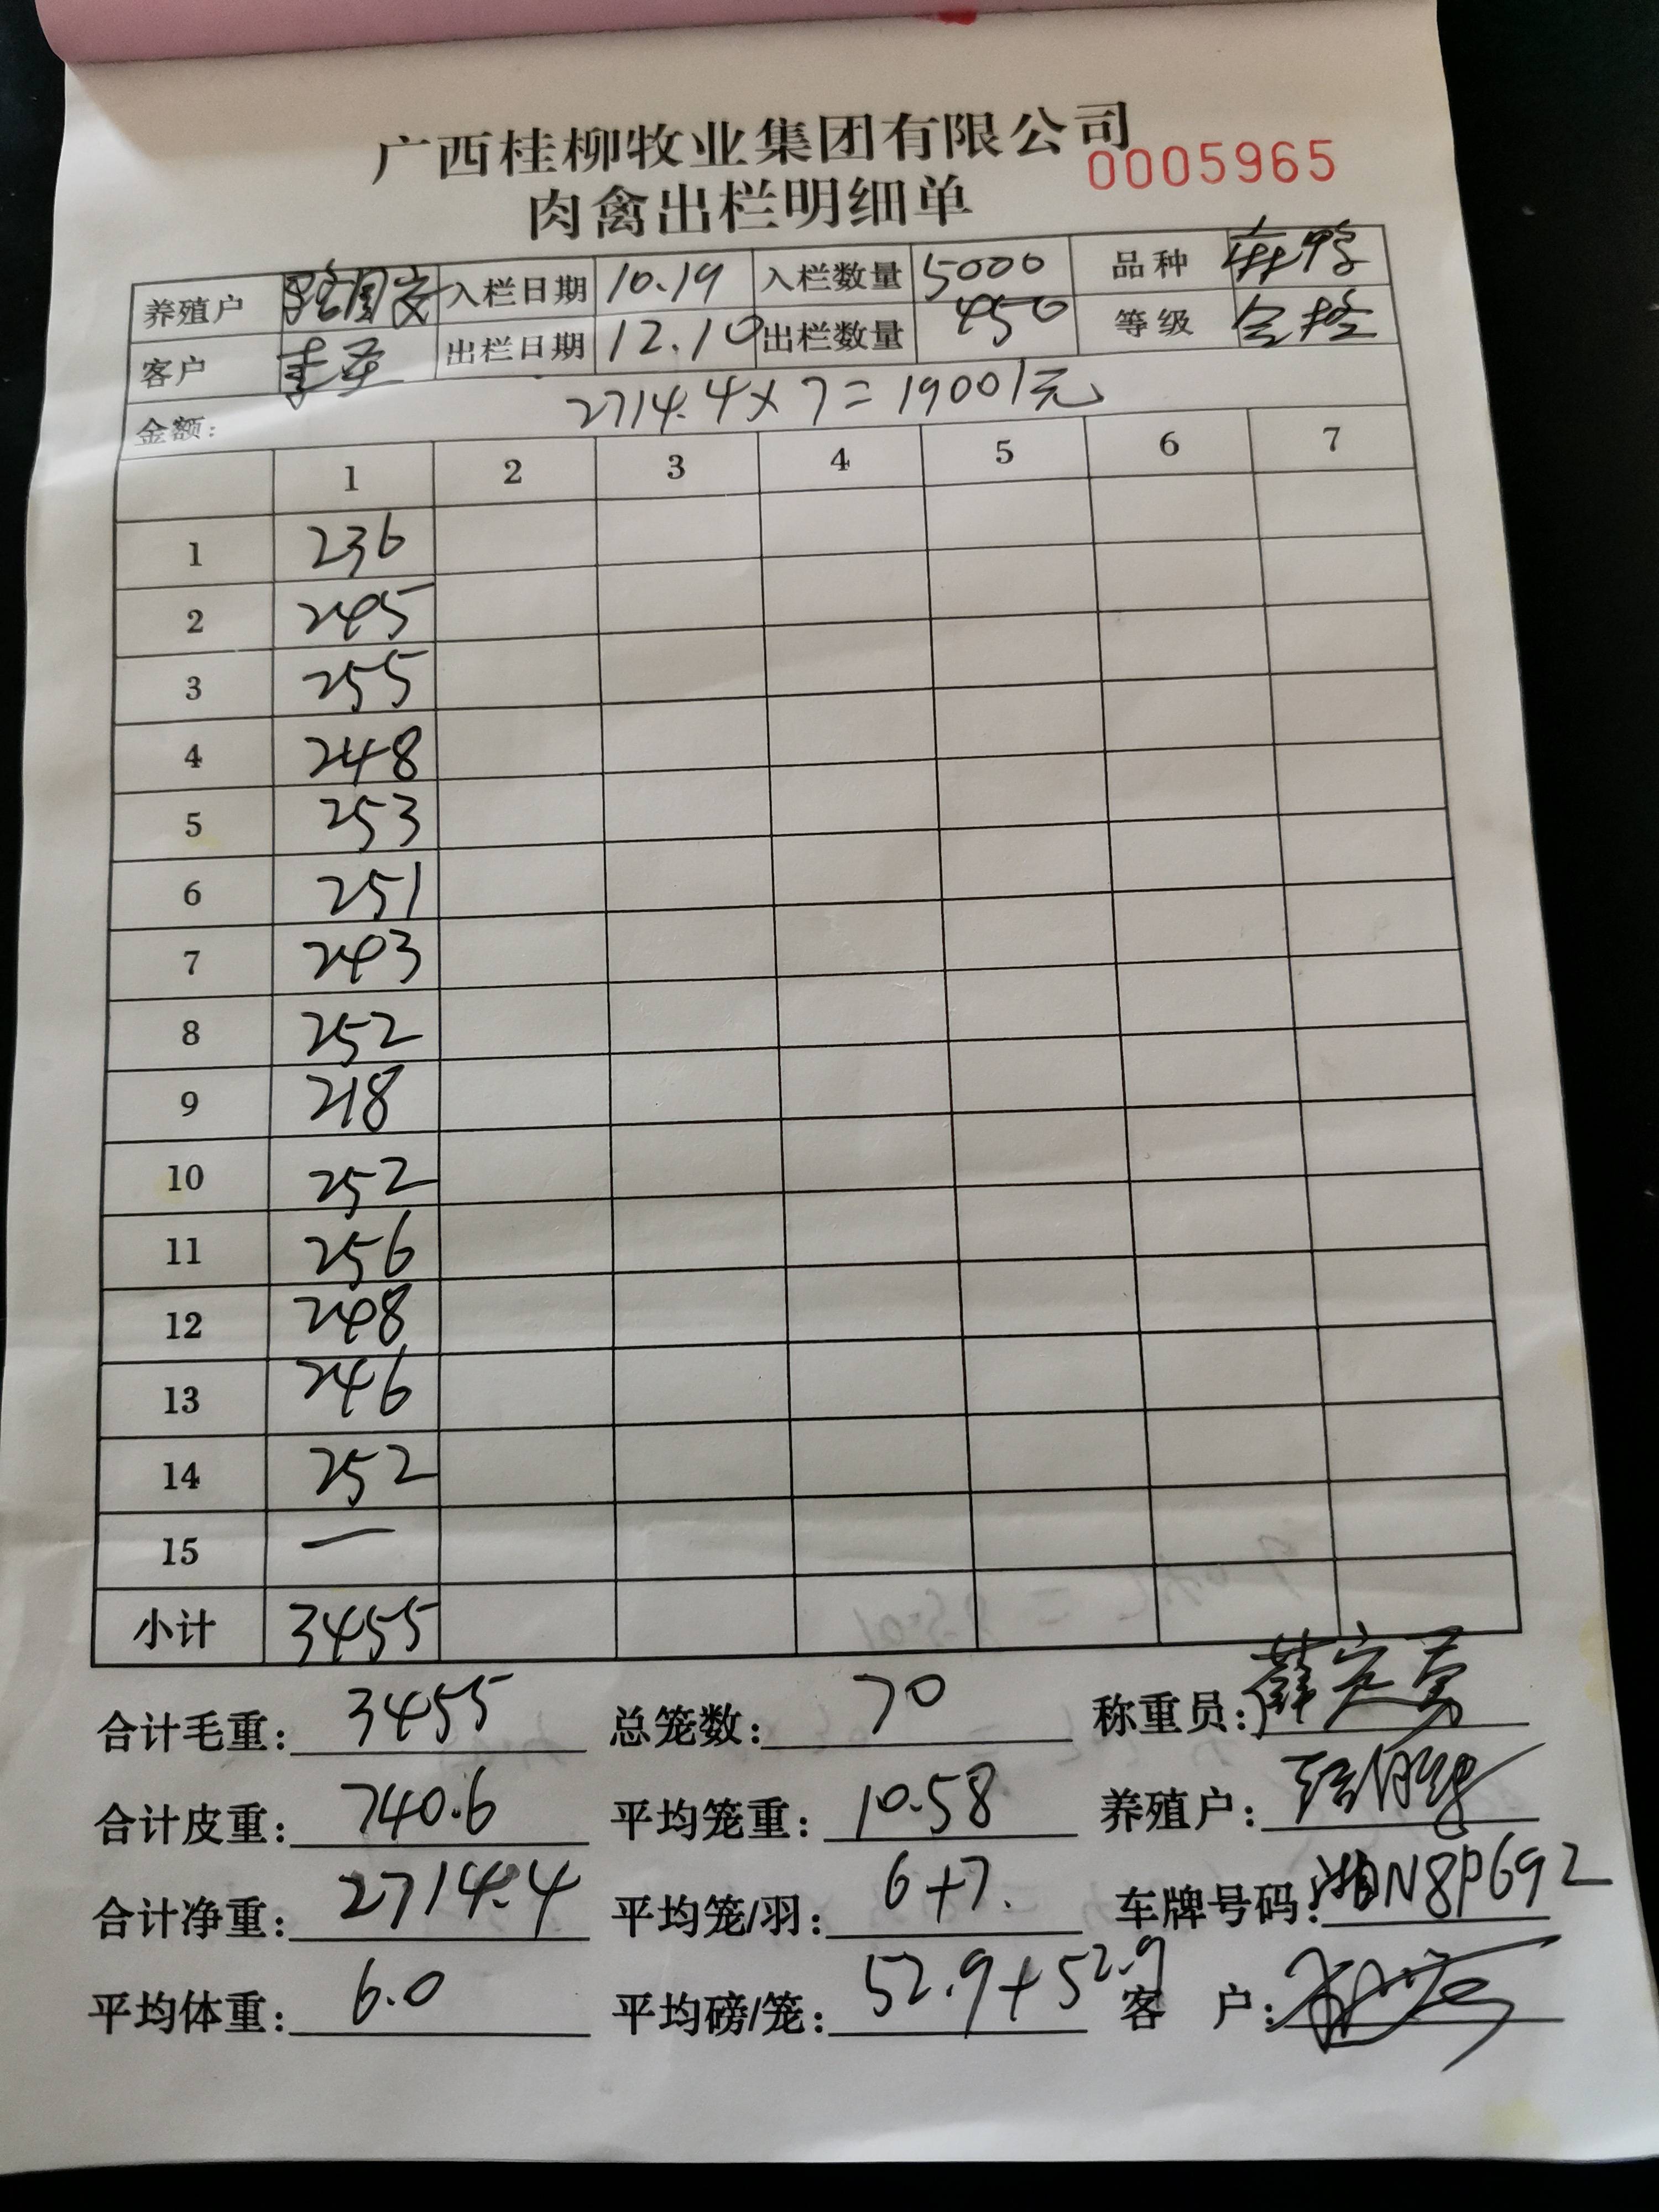 广西桂柳牧业集团有限公司
0005965
肉禽出栏明细单
养殖户 入栏日期 10.19 入栏数量 5000 品种 麻鸭
客户 出栏日期 12.10 出栏数量 450 等级
金额: 2714.4×7=19001元
1 2 3 4 5 6 7
1 236
2 245
3 255
4 248
5 253
6 251
7 243
8 252
9 218
10 252
11 256
12 248
13 246
14 252
15 一
小计 3455
合计毛重: 3455 总笼数: 70 称重员:
合计皮重: 740.6 平均笼重: 10.58 养殖户:
合计净重: 2714.4 平均笼/羽: 6+7. 车牌号码: 湘N8P692
平均体重: 6.0 平均磅/笼: 52.9+52.9 客 户: